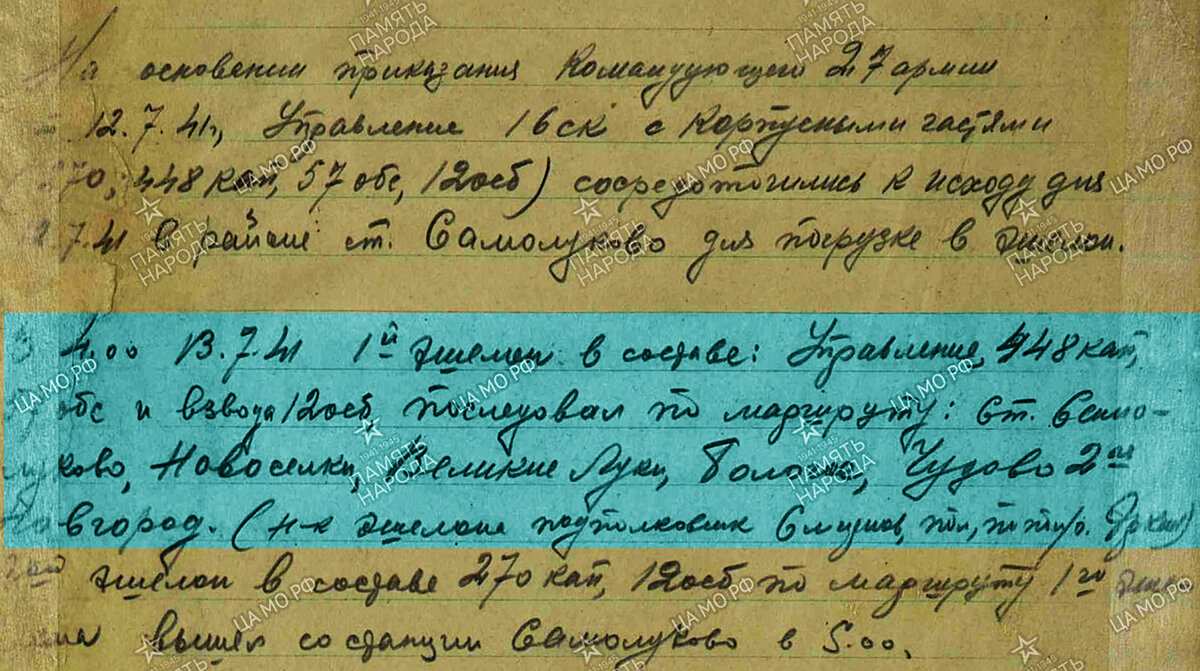 На основении приказания Командующего 27 армии
12.7.41г, Управление 16ск с Корпусными частями
270, 448 кап, 57 обс, 12 осб) сосредоточились к исходу дня
.7.41 в районе ст. Самолуково для погрузке в эшелон.
В 4.00 13.7.41 1й эшелон в составе: Управление, 448 кап,
обс и взвода 12 осб последовал по маршруту: ст. Само-
луково, Новоселки, Великие Луки, Чудово 2ое
Новгород. (н-к эшелона подполковник
2ой эшелон в составе 270 кап, 12 осб по маршруту 1го эше-
лона вышел со станции Самолуково в 5.00.
ПАМЯТЬ НАРОДА
ЦА МО РФ
1941-1945